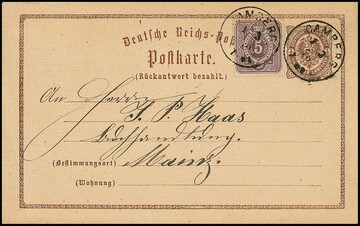 Deutsche Reichs-Post
CAMBERG
5
CAMBERG
Postkarte.
(Rückantwort bezahlt.)
An Herrn
J. P. Haas
Buchhandlung.
(Bestimmungsort) Mainz.
(Wohnung)